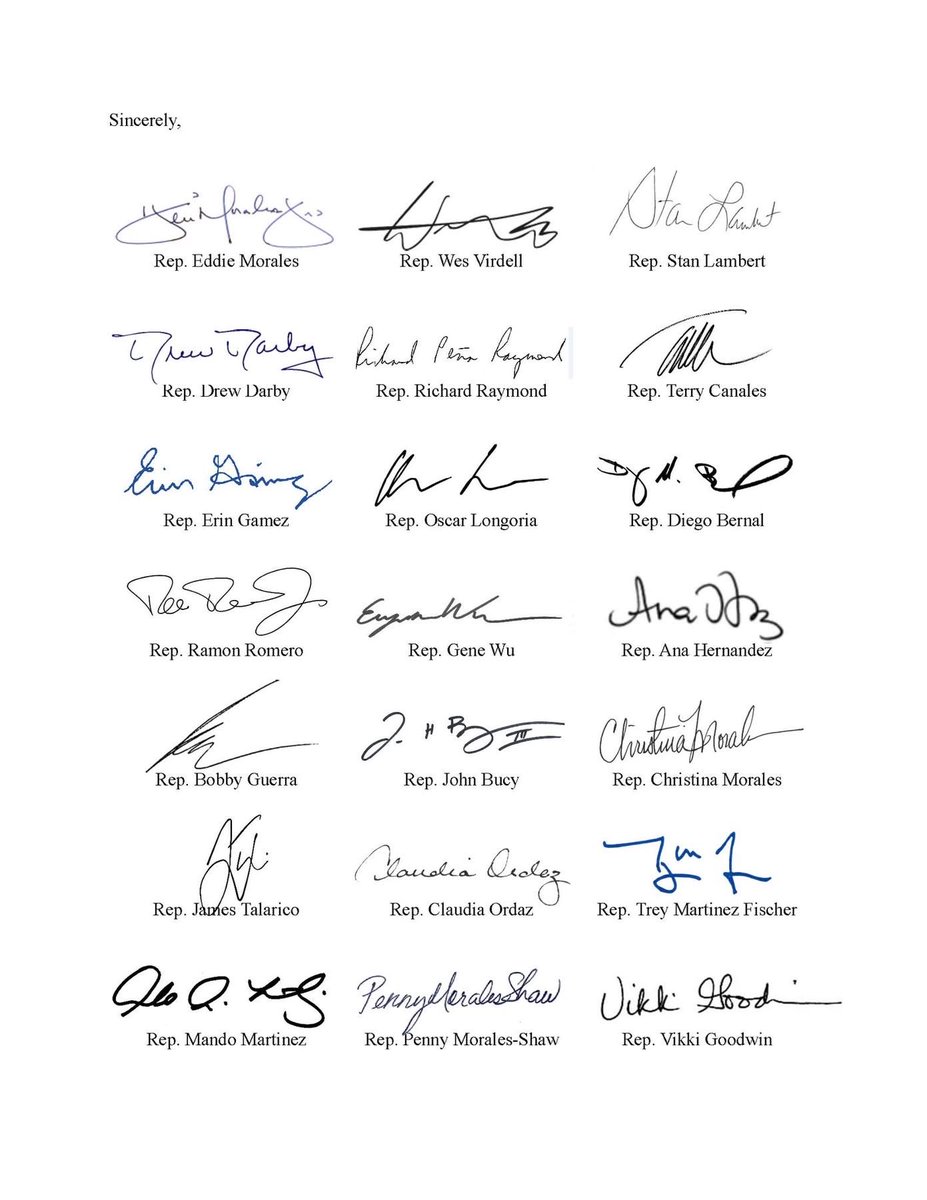 Sincerely,
Eddie Morales Jr.
Stan Lambert
Rep. Eddie Morales Rep. Wes Virdell Rep. Stan Lambert
Drew Darby Richard Peña Raymond
Rep. Drew Darby Rep. Richard Raymond Rep. Terry Canales
Erin Gámez
Rep. Erin Gamez Rep. Oscar Longoria Rep. Diego Bernal
Rep. Ramon Romero Rep. Gene Wu Rep. Ana Hernandez
Rep. Bobby Guerra Rep. John Bucy Rep. Christina Morales
Claudia Ordaz
Rep. James Talarico Rep. Claudia Ordaz Rep. Trey Martinez Fischer
Penny Morales Shaw Vikki Goodwin
Rep. Mando Martinez Rep. Penny Morales-Shaw Rep. Vikki Goodwin